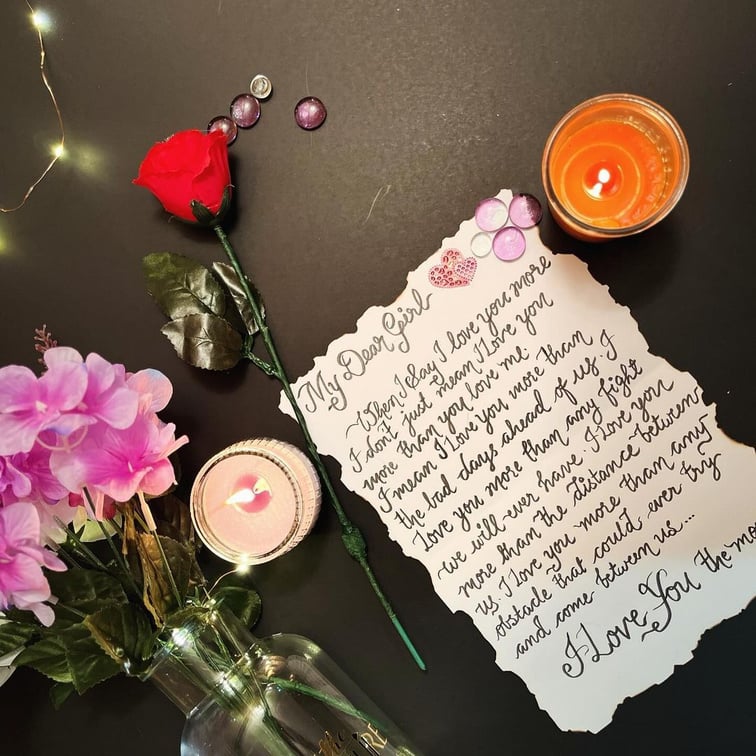 My Dear Girl
When I say I love you more
I don't just mean I love you
more than you love me.
I mean I love you more than
the bad days ahead of us. I
Love you more than any fight
we will ever have. I love you
more than the distance between
us. I love you more than any
obstacle that could ever try
and come between us...
I Love You the mo